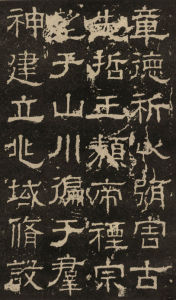 章德祈以弭害古
先哲王類帝禋宗
望于山川徧于羣
神建立兆域脩設